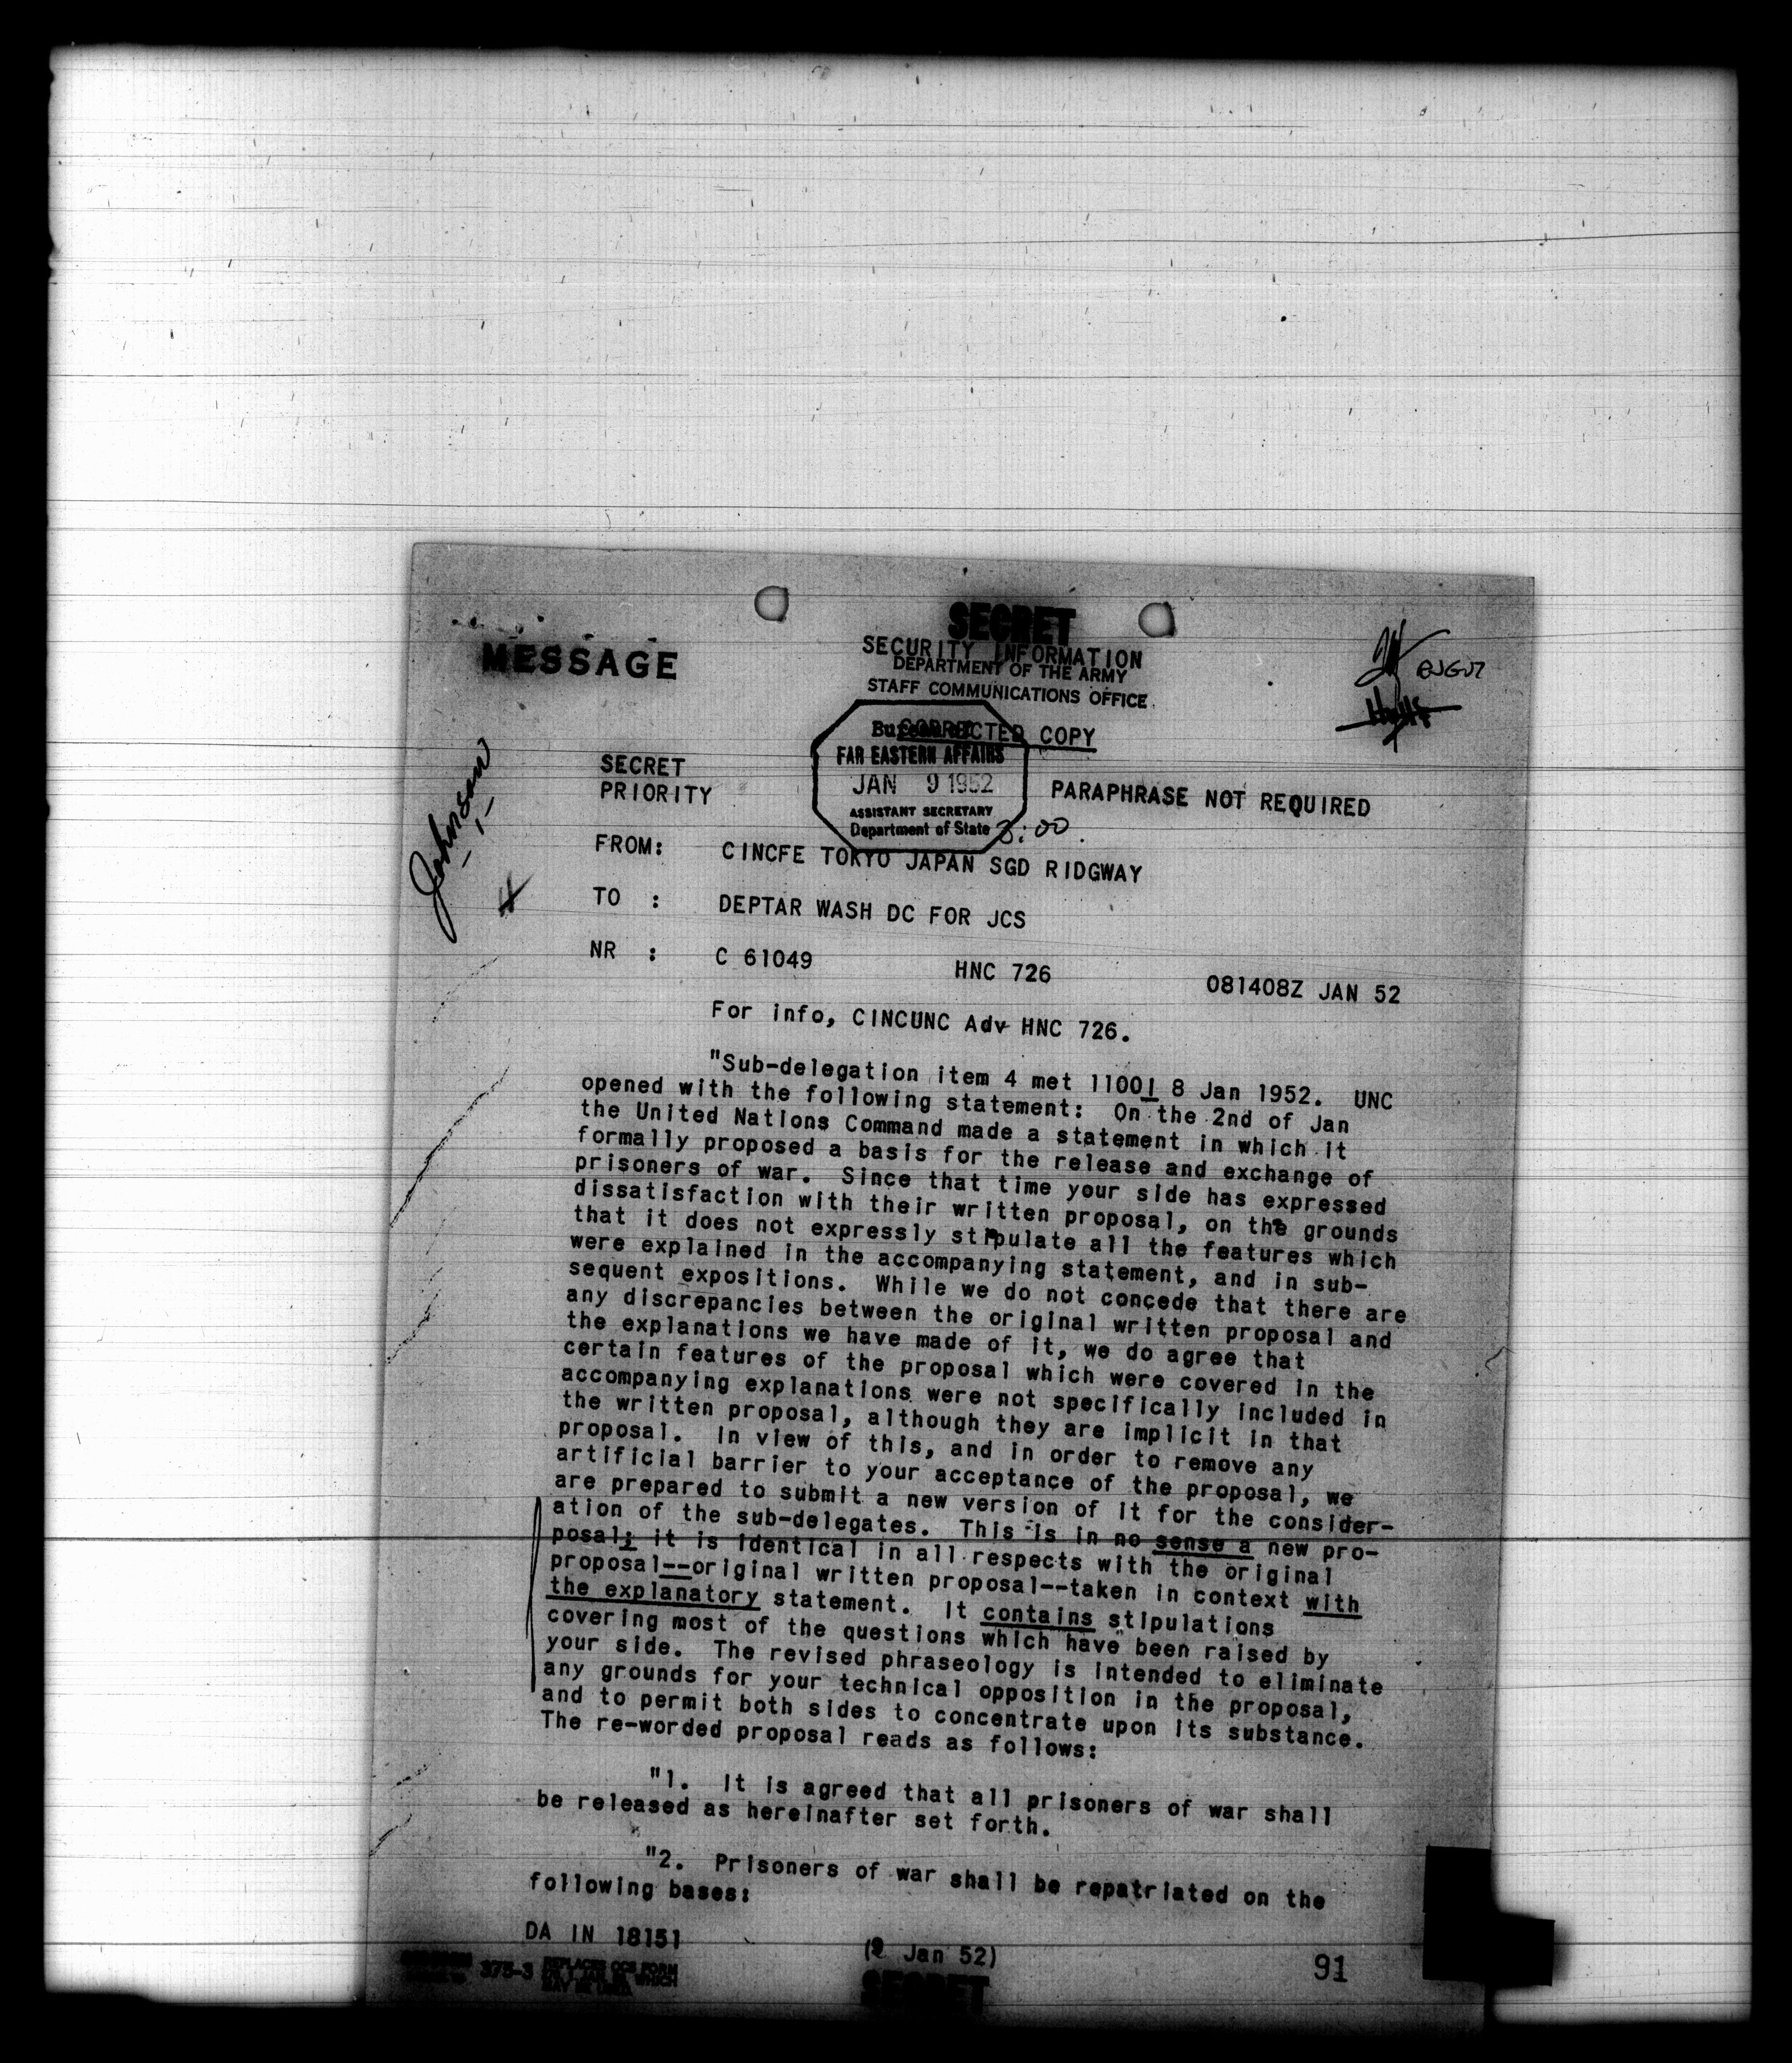 SECRET
SECURITY INFORMATION
MESSAGE
DEPARTMENT OF THE ARMY
STAFF COMMUNICATIONS OFFICE
CORRECTED COPY
FAR EASTERN AFFAIRS
JAN 9 1952
ASSISTANT SECRETARY
Department of State
3:00
Johnson
SECRET
PRIORITY
PARAPHRASE NOT REQUIRED
FROM: CINCFE TOKYO JAPAN SGD RIDGWAY
TO : DEPTAR WASH DC FOR JCS
NR : C 61049 HNC 726 081408Z JAN 52
For info, CINCUNC Adv HNC 726.
"Sub-delegation item 4 met 1100I 8 Jan 1952. UNC
opened with the following statement: On the 2nd of Jan
the United Nations Command made a statement in which it
formally proposed a basis for the release and exchange of
prisoners of war. Since that time your side has expressed
dissatisfaction with their written proposal, on the grounds
that it does not expressly stipulate all the features which
were explained in the accompanying statement, and in sub-
sequent expositions. While we do not concede that there are
any discrepancies between the original written proposal and
the explanations we have made of it, we do agree that
certain features of the proposal which were covered in the
accompanying explanations were not specifically included in
the written proposal, although they are implicit in that
proposal. In view of this, and in order to remove any
artificial barrier to your acceptance of the proposal, we
are prepared to submit a new version of it for the consider-
ation of the sub-delegates. This is in no sense a new pro-
posal; it is identical in all respects with the original
proposal--original written proposal--taken in context with
the explanatory statement. It contains stipulations
covering most of the questions which have been raised by
your side. The revised phraseology is intended to eliminate
any grounds for your technical opposition in the proposal,
and to permit both sides to concentrate upon its substance.
The re-worded proposal reads as follows:
"1. It is agreed that all prisoners of war shall
be released as hereinafter set forth.
"2. Prisoners of war shall be repatriated on the
following bases:
DA IN 18151
(9 Jan 52)
91
375-3
REPLACES OCS FORM
SECRET